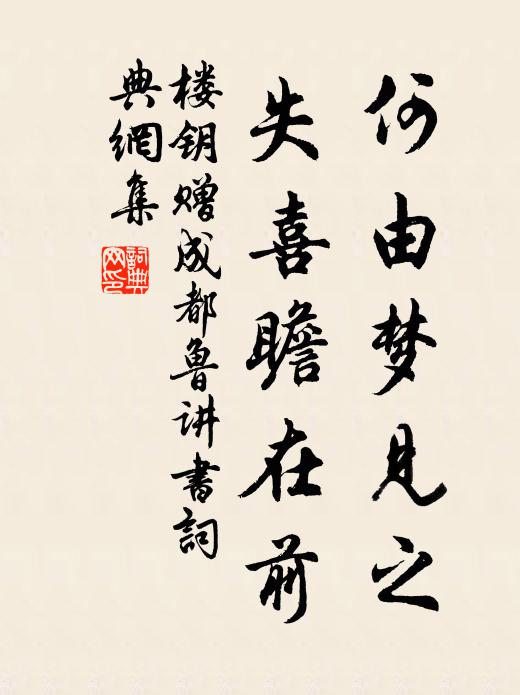 何由梦见之
失喜瞻在前
楼钥赠成都鲁讲书詞
典網集
詞典
网印